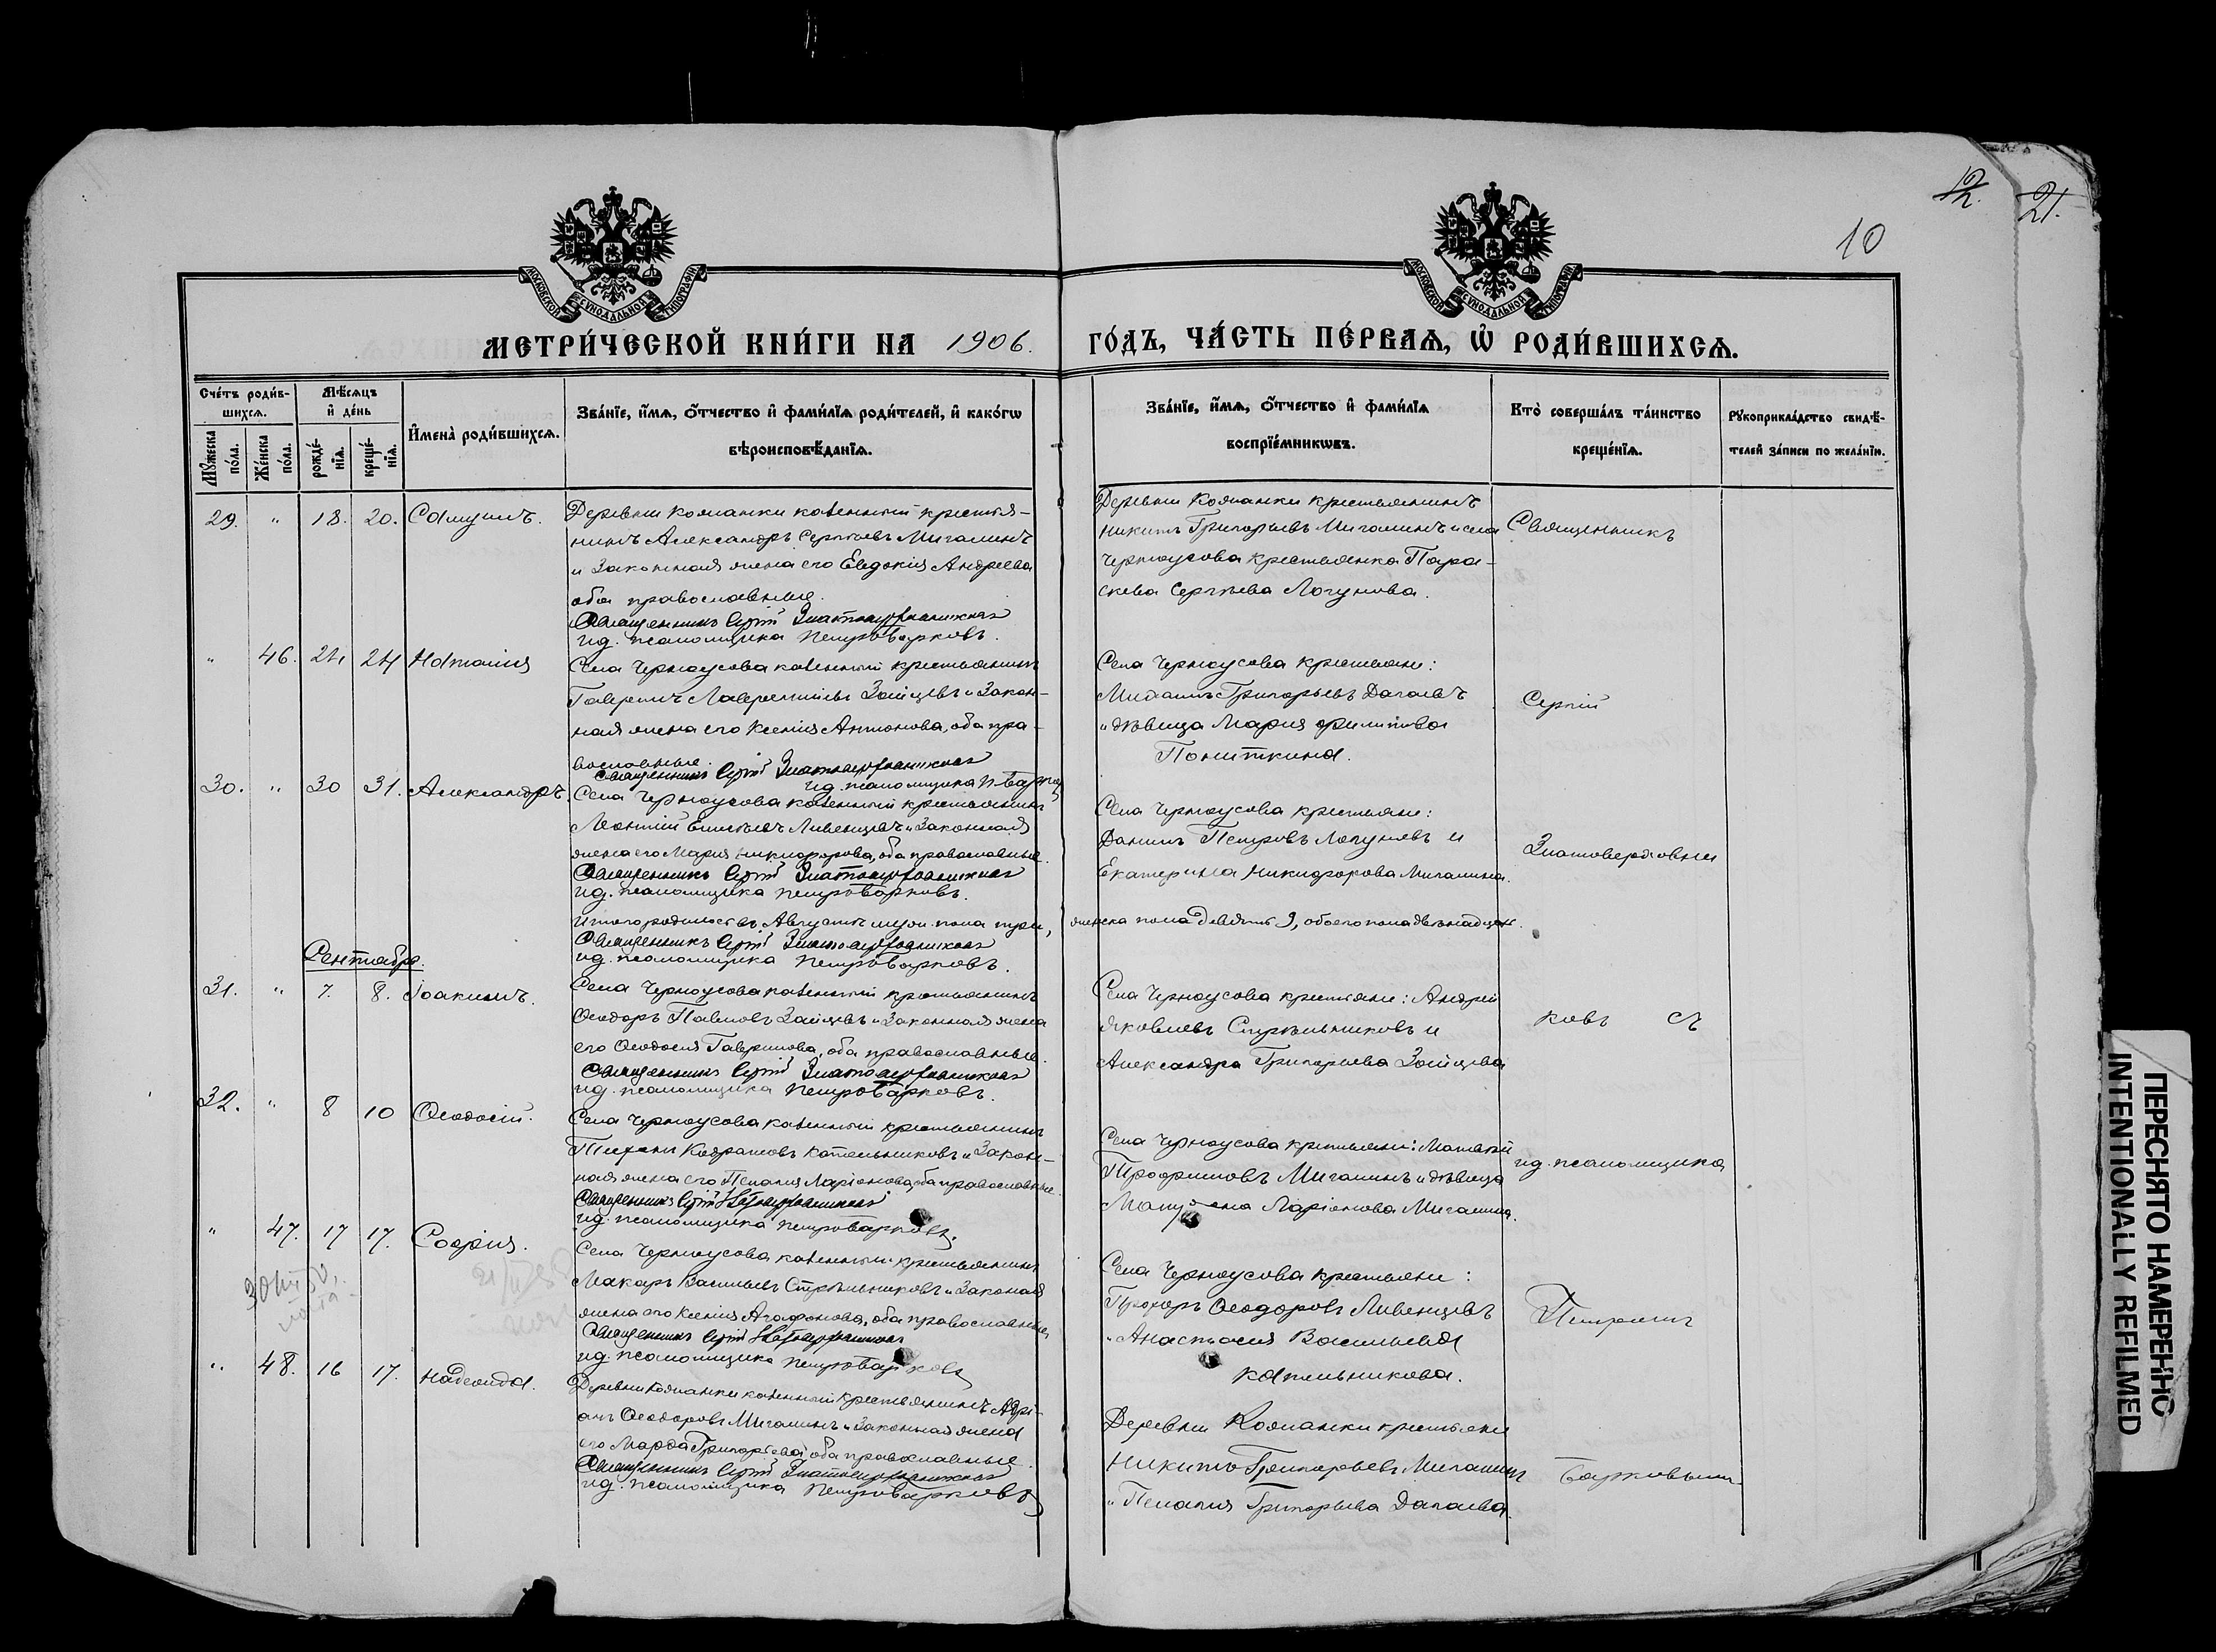 12. 21.
10
МОСКОВСКОЙ СѴНОДАЛЬНОЙ ТИПОГРАФІИ
МОСКОВСКОЙ СѴНОДАЛЬНОЙ ТИПОГРАФІИ
МЕТРИ́ЧЕСКОЙ КНИ́ГИ НА 1906. ГО́ДЪ, ЧА́СТЬ ПЕ́РВАѦ, Ѽ РОДИ́ВШИХСѦ.
Сче́тъ роди́в-
шихсѧ.
Мꙋ́жеска по́ла.
Же́нска по́ла.
Мѣ́сѧцъ
и҆ де́нь
рожде́-
нїѧ.
креще́-
нїѧ.
И҆мена̀ роди́вшихсѧ.
Зва́нїе, и҆́мѧ, ѻ҆́тчество и҆ фами́лїѧ роди́телей, и҆ како́гѡ
вѣроисповѣ́данїѧ.
Зва́нїе, и҆́мѧ, ѻ҆́тчество и҆ фами́лїѧ
воспрїе́мникѡвъ.
Кто̀ соверша́лъ та́инство
креще́нїѧ.
Рꙋкоприкла́дство свидѣ́-
телей за́писи по жела́нїю.
29. " 18. 20. Самуилъ.
Деревни Колпанки казенный крестья-
нинъ Александръ Сергѣевъ Мигалинъ
и законная жена его Евдокія Андреева
оба православные.
Священникъ Сергій Златоверховниковъ
и.д. псаломщика Петръ Барковъ.
Деревни Колпанки крестьянинъ
Никита Григорьевъ Мигалинъ и села
Черноусова крестьянка Пара-
скева Сергѣева Логунова.
Священникъ
" 46. 24 24 Наталія
Села Черноусова казенный крестьянинъ
Гавріилъ Лаврентьевъ Зайцевъ и закон-
ная жена его Ксенія Антонова, оба пра-
вославные.
Священникъ Сергій Златоверховниковъ
и.д. псаломщика П. Барковъ
Села Черноусова крестьяне:
Михаилъ Григорьевъ Дагаевъ
и дѣвица Марія Филиппова
Поныткина.
Сергій
30. " 30 31. Александръ.
Села Черноусова казенный крестьянинъ
Леонтій Елисѣевъ Ливенцевъ и законная
жена его Марія Никифорова, оба православные.
Священникъ Сергій Златоверховниковъ
и.д. псаломщика Петръ Барковъ.
Села Черноусова крестьяне:
Даніилъ Петровъ Логуновъ и
Екатерина Никифорова Мигалина.
Златоверховни
Итого родилось въ Августѣ муж. пола три, женска пола девять 9, обоего пола двѣнадцать.
Священникъ Сергій Златоверховниковъ
и.д. псаломщика Петръ Барковъ.
Сентябрь.
31. " 7. 8. Іоакимъ.
Села Черноусова казенный крестьянинъ
Ѳеодоръ Павловъ Зайцевъ и законная жена
его Ѳеодосія Гаврилова, оба православные.
Священникъ Сергій Златоверховниковъ
и.д. псаломщика Петръ Барковъ.
Села Черноусова крестьяне: Андрей
Яковлевъ Стрѣльниковъ и
Александра Григорьева Зайцева
ковъ съ
32. " 8 10 Ѳеодосій.
Села Черноусова казенный крестьянинъ
Тихонъ Кодратовъ Котельниковъ и закон-
ная жена его Пелагія Ларіонова, оба православные.
Священникъ Сергій Златоверховниковъ
и.д. псаломщика Петръ Барковъ.
Села Черноусова крестьяне: Матвѣй
Трофимовъ Мигалинъ и дѣвица
Ларіонова Мигалина.
и.д. псаломщика
" 47. 17 17. Софія.
Села Черноусова казенный крестьянинъ
Макаръ Васильевъ Стрѣльниковъ и законая
жена его Ксенія Агафонова, оба православные
Священникъ Сергій Златоверховниковъ
и.д. псаломщика Петръ Барковъ
Села Черноусова крестьяне:
Прохоръ Ѳеодоровъ Ливенцевъ
и Анастасія Васильева
Котельникова.
Петромъ
" 48. 16 17. Надежда.
Деревни Колпанки казенный крестьянинъ Адрі-
анъ Ѳеодоровъ Мигалинъ и законная жена
его Марфа Григорьева оба православные.
Священникъ Сергій Златоверховниковъ
и.д. псаломщика Петръ Барковъ
Деревни Колпанки крестьяне
Никита Григорьевъ Мигалинъ
и Пелагія Григорьева Дагаева.
Барковымъ
ПЕРЕСНЯТО НАМЕРЕННО
INTENTIONALLY REFILMED